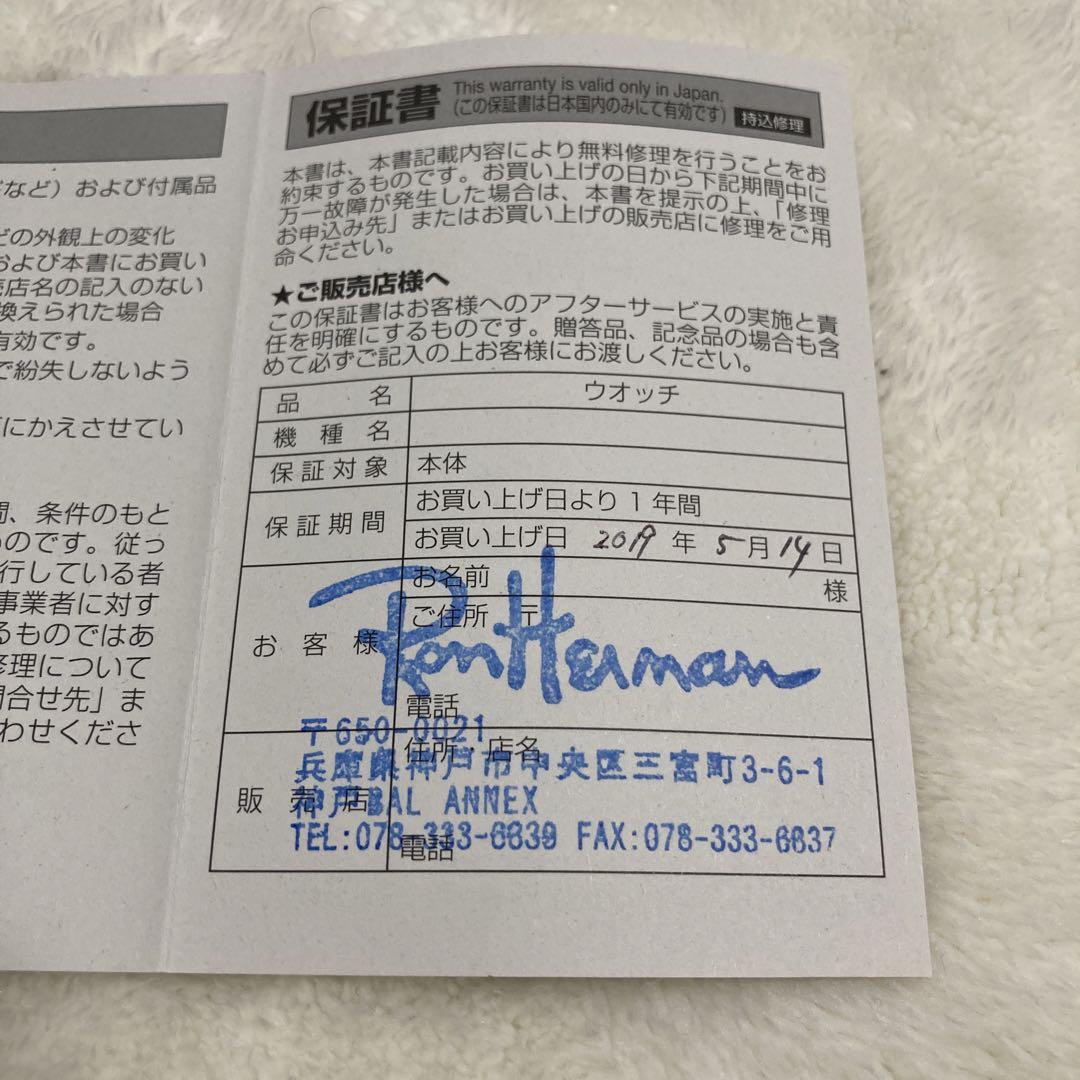 など）および付属品
どの外観上の変化
および本書にお買い
売店名の記入のない
換えられた場合
有効です。
で紛失しないよう
にかえさせてい
間、条件のもと
のです。従っ
行している者
事業者に対す
るものではあ
修理について
問合せ先」ま
わせくださ
保証書 This warranty is valid only in Japan.
（この保証書は日本国内のみにて有効です） 持込修理
本書は、本書記載内容により無料修理を行うことをお
約束するものです。お買い上げの日から下記期間中に
万一故障が発生した場合は、本書を提示の上、「修理
お申込み先」またはお買い上げの販売店に修理をご用
命ください。
★ご販売店様へ
この保証書はお客様へのアフターサービスの実施と責
任を明確にするものです。贈答品、記念品の場合も含
めて必ずご記入の上お客様にお渡しください。
品名 ウオッチ
機種名
保証対象 本体
保証期間 お買い上げ日より1年間
お買い上げ日 2019 年 5 月 14 日
お客様 お名前 様
ご住所 〒
Ron Herman
電話
〒650-0021
販売店 住所・店名
兵庫県神戸市中央区三宮町3-6-1
神戸BAL ANNEX
TEL:078-333-6839 FAX:078-333-6837
電話